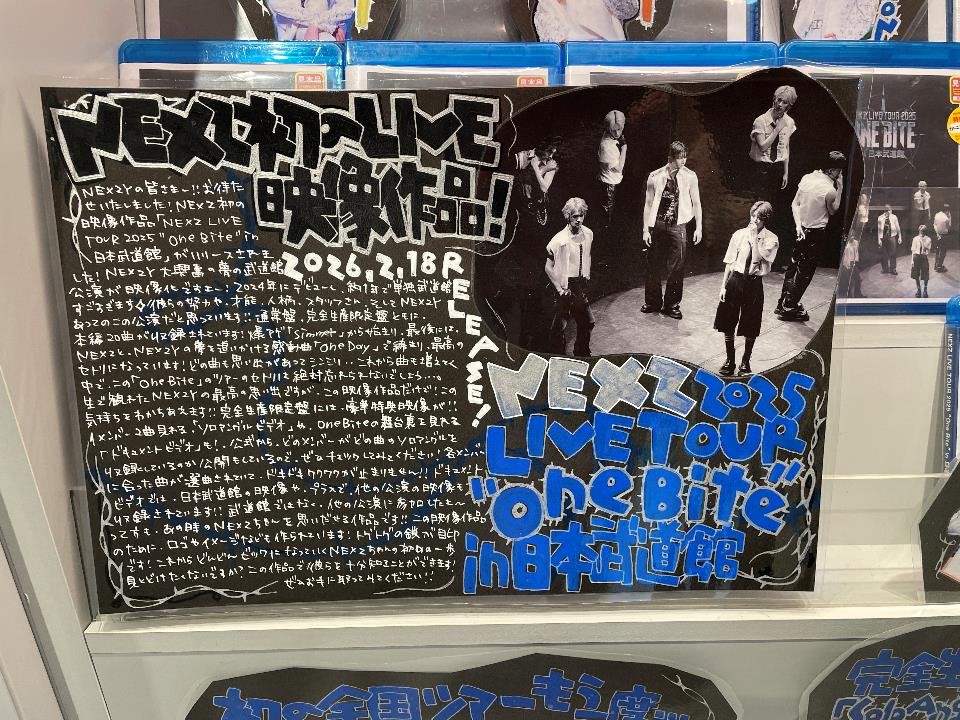 NEXZ初のLIVE
映像作品!
NEXZYの皆さまー!!お待た
せいたしました!NEXZ初の
映像作品「NEXZ LIVE
TOUR 2025 "One Bite" in
日本武道館」がリリースされま
した!NEXZY大興奮の夢の武道館
公演が映像化ですよー!2024年にデビューし、約1年で単独武道館
すごすぎます 彼らの努力や、才能、人柄、スタッフさん、そしてNEXZY
あってのこの公演だと思っています!!通常盤、完全生産限定盤ともに、
本編20曲が収録されています!爆アゲ「Simmer」から始まり、最後には、
NEXZと、NEXZYの夢を追いかける感動曲「One Day」で締まり、最高の
セトリになっています!どの曲も思い出があって これから曲も増えてく
中で、この「One Bite」のツアーのセトリは絶対忘れられないでしょう…。
生で観れたNEXZYの最高の思い出ですが、この映像作品だけで!!この
気持ちをわかちあえます!!完全生産限定盤には、豪華特典映像が!!
メンバー2曲見れる「ソロアングルビデオ」や、One Biteの舞台裏を見れる
「ドキュメントビデオ」も!公式から、どのメンバーがどの曲のソロアングルを
収録しているのか公開もしているので、ぜひチェックしてみてください!各メンバー
に合った曲が選曲されていて、ドキドキワクワクが止まりません!!ドキュメント
ビデオでは、日本武道館の映像や、プラスで、他の公演の映像も
収録されています!!武道館ではなく、他の公演に参戦したよ〜
って方も、あの時のNEXZちゃんを思い出せる作品です!!この映像作品
のために、ロゴやイメージなども作られています!トゲトゲの鎖が目印
です!これからどんどんビッグになっていくNEXZちゃんの初の一歩
見とどけたくないですか?この作品で彼らを十分知ることができます!
ぜひお手に取ってみてください!!
2026.2.18 RELEASE!
NEXZ 2025
LIVE TOUR
"One Bite"
in 日本武道館
見本品
見本品
NEXZ LIVE TOUR 2025
ONE BITE
日本武道館
NEXZ LIVE TOUR 2025 "One Bite" in
初の全国ツアーもう一度…
完全生